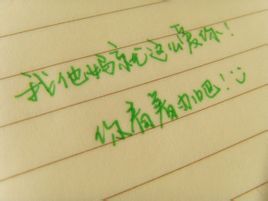 我他妈就这么爱你!
你看着办吧!